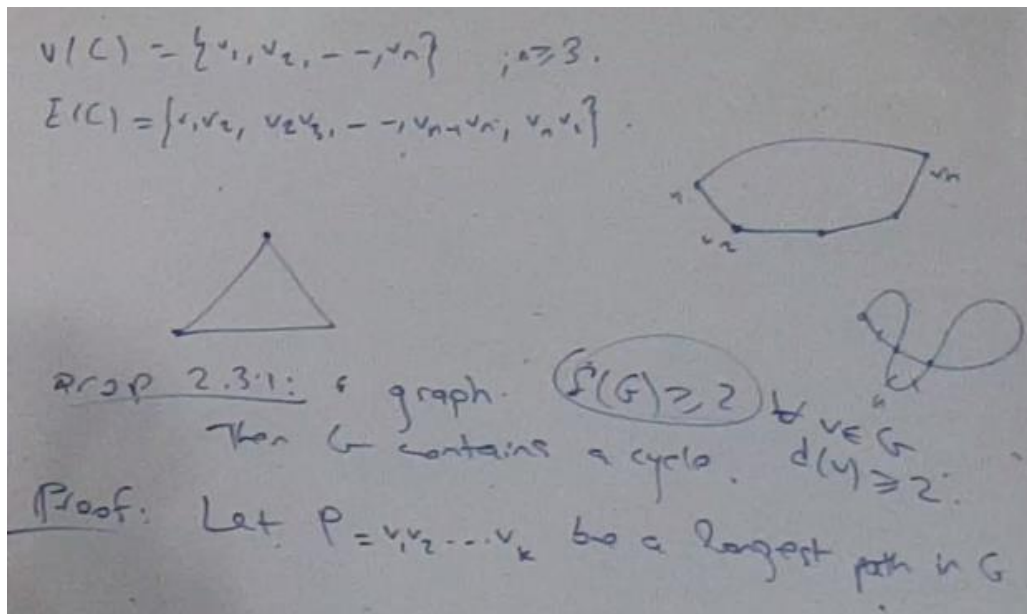 V(C) = {v₁, v₂, - -, vₙ} ; n ≥ 3.
E(C) = {v₁v₂, v₂v₃, - -, vₙ₋₁vₙ, vₙv₁}.
vₙ
v₂
Prop 2.3.1: G graph. δ(G) ≥ 2 ∀ v ∈ G
Then G contains a cycle. d(v) ≥ 2.
Proof: Let P = v₁v₂ ... vₖ be a longest path in G